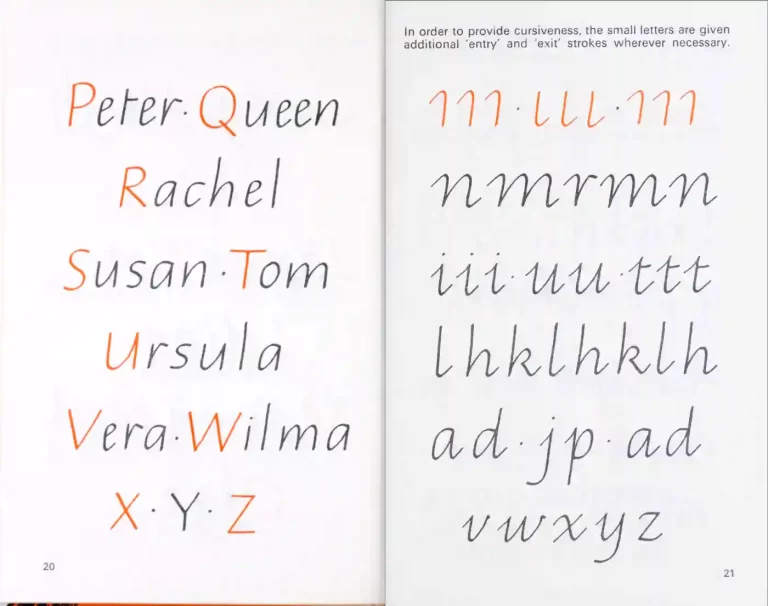 Peter · Queen
Rachel
Susan · Tom
Ursula
Vera · Wilma
X · Y · Z
20
In order to provide cursiveness, the small letters are given
additional ‘entry’ and ‘exit’ strokes wherever necessary.
111 · lll · 111
nmrmn
iii · uu · ttt
lhklhklh
ad · jp · ad
vwxyz
21